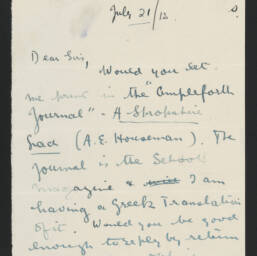 July 21/12
Dear Sir,
Would you let
me print in the "Ampleforth
Journal" - A Shropshire
Lad (A.E. Houseman). The
Journal is the School
magazine & I am
having a Greek Translation
of it. Would you be good
enough to reply by return